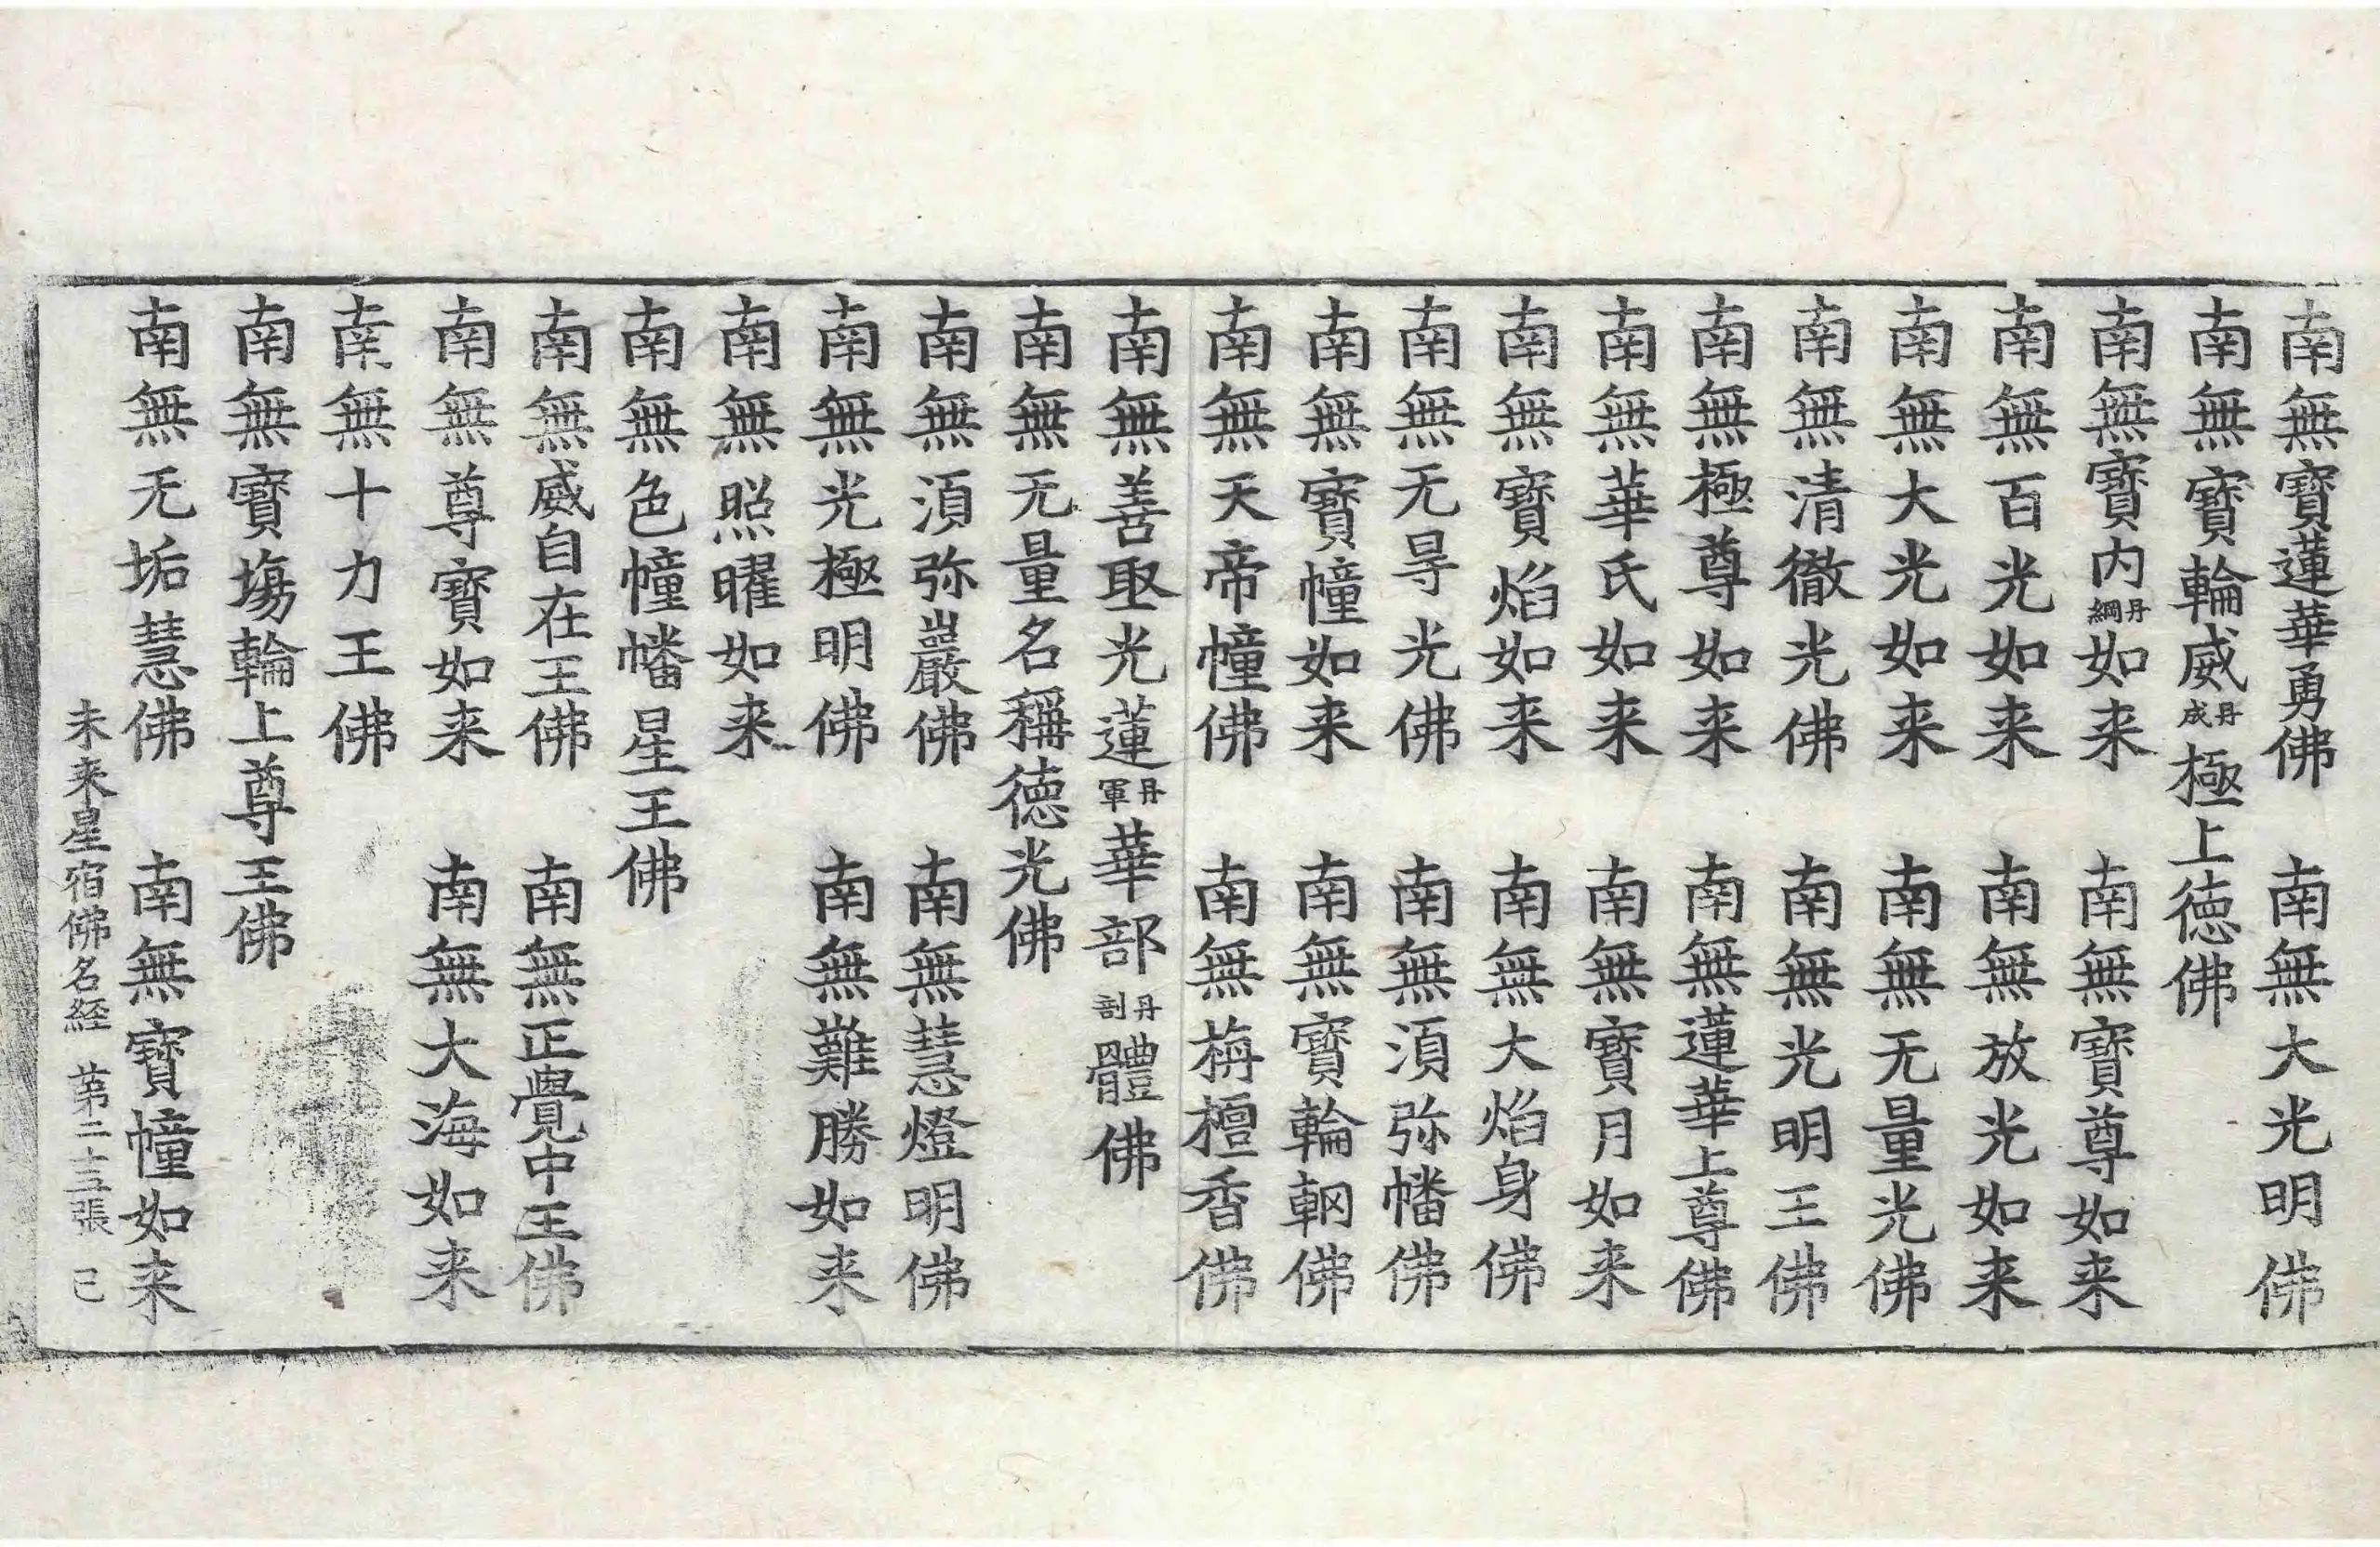 南無寶蓮華勇佛　南無大光明佛
南無寶輪威丹成極上德佛
南無寶内丹網如来　南無寶尊如来
南無百光如来　南無放光如来
南無大光如来　南無无量光佛
南無清徹光佛　南無光明王佛
南無極尊如来　南無蓮華上尊佛
南無華氏如来　南無寶月如来
南無寶焰如来　南無大焰身佛
南無无㝵光佛　南無湏弥幡佛
南無寶幢如来　南無寶輪輞佛
南無天帝幢佛　南無栴檀香佛
南無善聖光蓮丹軍華部丹剖體佛
南無无量名稱德光佛
南無湏弥巖佛　南無慧燈明佛
南無光極明佛　南無難勝如来
南無照曜如来
南無色幢幡星王佛
南無威自在王佛　南無正覺中王佛
南無尊寶如来　南無大海如来
南無十力王佛
南無寶塲輪上尊王佛
南無无垢慧佛　南無寶幢如来
未来星宿佛名経　第二十三張　己